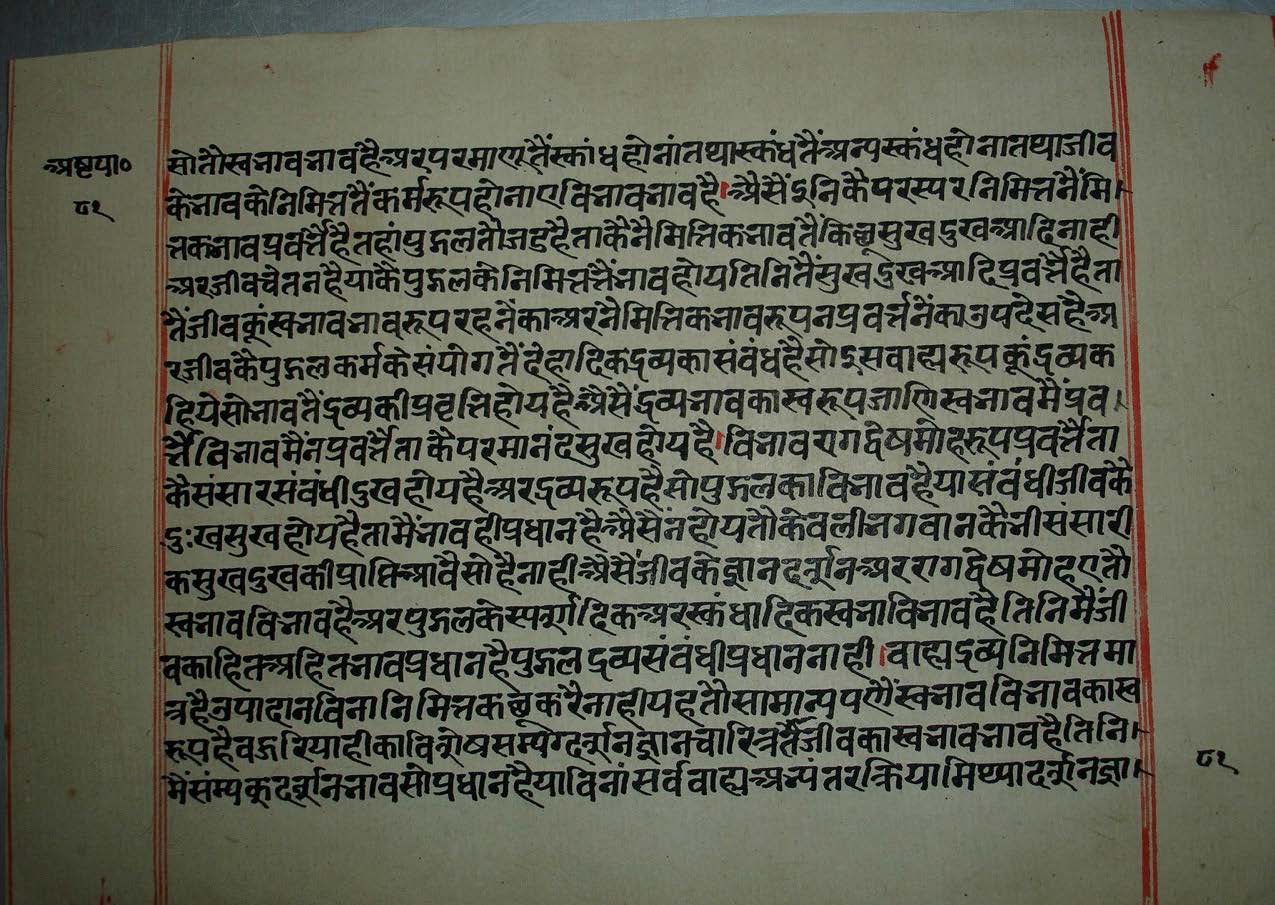 अष्टपा०
८१
सो तौ स्वभाव भाव है अर परमाणूतैं स्कांध होनां तथा स्कंधतैं अन्य स्कंध होना तथा जीव
के भाव के निमित्ततैं कर्मरूप होना ए विभाव भाव है। अैसैं इनिकै परस्पर निमित्त नैंमि।
त्तक भाव प्रवर्त्तै है तहां पुद्गल तौ जड है ताकै नैमित्तिक भावतैं किछू सुख दुख आदि नाही
अर जीव चेतन है याकै पुद्गल के निमित्ततैं भाव होय तिनितैं सुख दुख आदि प्रवर्त्तै है ता
तैं जीवकूं स्वभाव भावरूप रहनैंका अर नैमित्तिक भावरूप न प्रवर्त्तनैंका उपदेस है अ
र जीवकै पुद्गल कर्मके संयोगतैं देहादिक द्रव्यका संबंध है सो इस वाह्यरूपकूं द्रव्य क
हिये सो भावतैं द्रव्यकी प्रवृत्ति होय है अैसैं द्रव्य भावका स्वरूप जाणि स्वभावमैं प्रव।
र्त्तै विभावमैं न प्रवर्त्तै ताकै परमानंद सुख होय है। विभाव राग द्वेष मोहरूप प्रवर्त्तै ता
कै संसार संबंधी दुख होय है अर द्रव्यरूप है सो पुद्गलका विभाव है या संबंधी जीवकै
दुःख सुख होय है तामैं भावही प्रधान है अैसैं न होय तौ केवली भगवानकै भी संसारी
क सुख दुखकी प्राप्ति आवै सो है नाही अैसैं जीवके ज्ञान दर्शन अर राग द्वेष मोह ए तौ
स्वभाव विभाव है अर पुद्गलके स्पर्शादिक अर स्कंधादिक स्वभाव विभाव है तिनिमैं जी
वका हित अहित भाव प्रधान है पुद्गल द्रव्य संबंधी प्रधान नाही। वाह्य द्रव्य निमित्त मा
त्र है उपादान विना निमित्त कछू करै नाही यह तौ सामान्यपणैं स्वभाव विभावका स्व
रूप है वहुरि याहीका विशेष सम्यग्दर्शन ज्ञान चारित्र तौ जीवका स्वभाव भाव है तिनि।
मैं संम्यक् दर्शन भाव सो प्रधान है या विनां सर्व वाह्य अभ्यंतर क्रिया मिथ्यादर्शन ज्ञा।
८१